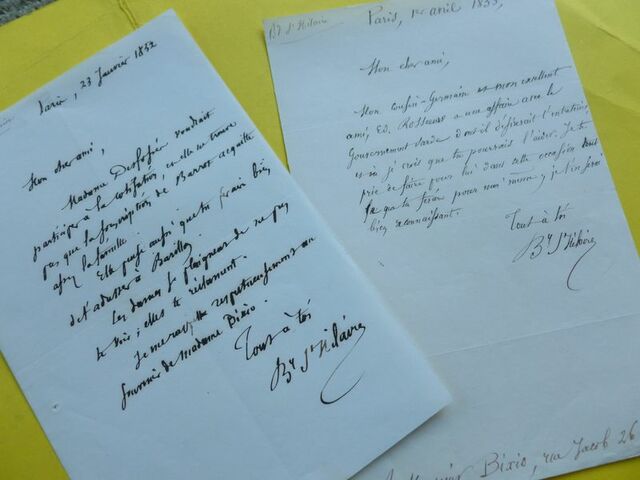 Paris, 23 Janvier 1852
Mon cher ami,
Madame voudrait
participer à la cotisation, et elle ne trouve
pas que la souscription de Barrot acquitte
assez la famille.
Elle pense aussi que tu ferais bien
de t'adresser à
Les dames se plaignent de ne pas
te voir; elles te réclament.
respectueusement au
souvenir de Madame Bixio.
Tout à toi
By St Hilaire
By St Hilaire
Paris, 1er avril 1853,
Mon cher ami,
Mon cousin-Germain et mon excellent
ami, Ed. a une affaire avec le
Gouvernement Sarde dont il désirerait t'entretenir
et où je crois que tu pourrais l'aider. Je te
prie de faire pour lui dans cette occasion tout
ce que tu ferais pour moi-même; je t'en serai
bien reconnaissant.
Tout à toi
By St Hilaire
à Monsieur Bixio, rue Jacob 26